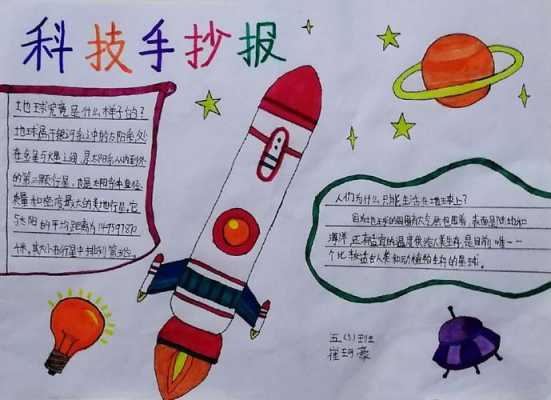 科技手抄报
地球究竟是什么样子的?
地球属于银河系之中的太阳系,处
在金星与火星之间,是太阳系从内到外
的第三颗行星,也是太阳系中直径、
质量和密度最大的类地行星。它
与太阳的平均距离为149597870
千米。其大小在行星中排列第5位。
人们为什么只能生活在地球上?
因为地球的周围有大气层包围着,表面是陆地和
海洋,还有适宜的温度供给人类生存,是目前唯一一
个比较适合人类和动植物生存的星球。
五(5)班